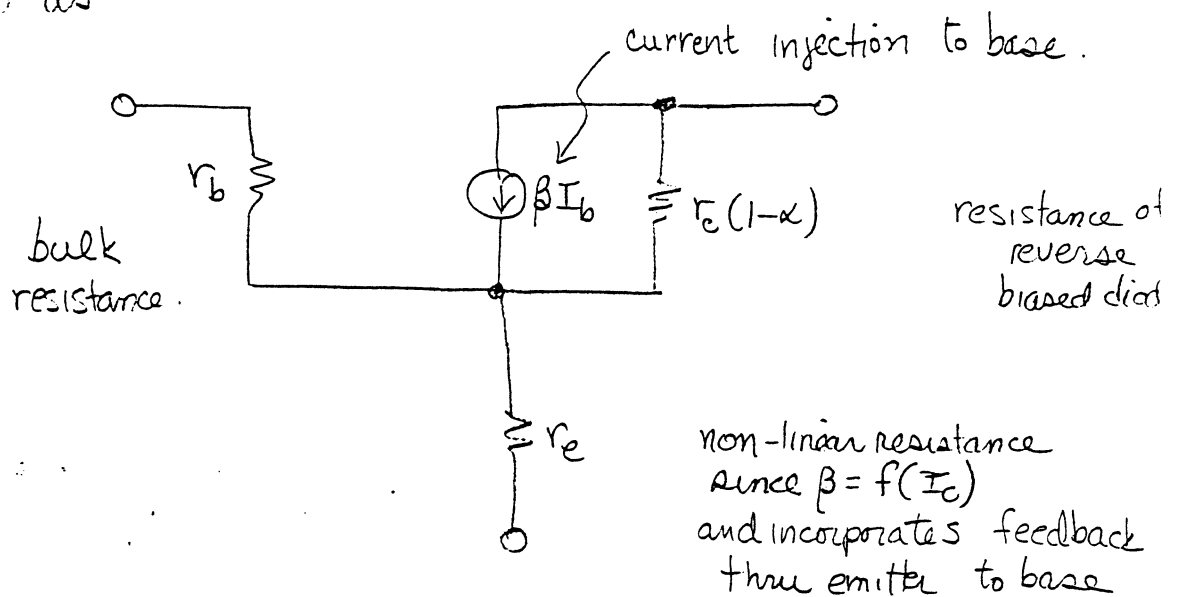 as
current injection to base.
r_b
βI_b
r_c(1-α)
bulk
resistance.
resistance of
reverse
biased diod
r_e
non-linear resistance
since β = f(I_c)
and incorporates feedback
thru emitter to base